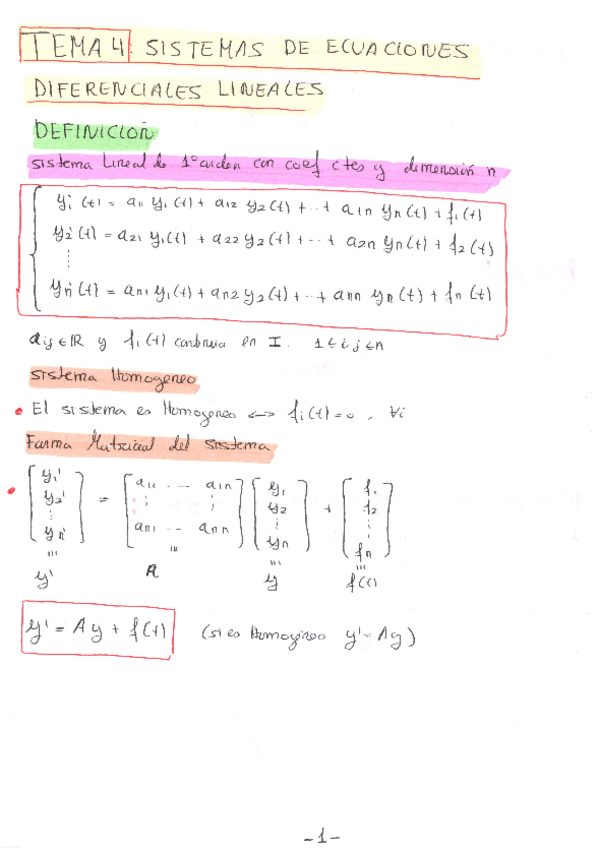 TEMA 4: SISTEMAS DE ECUACIONES
DIFERENCIALES LINEALES
DEFINICION
sistema Lineal de 1º orden con coef ctes y dimensión n
y₁'(t) = a₁₁ y₁(t) + a₁₂ y₂(t) + ··+ a₁n yn(t) + f₁(t)
y₂'(t) = a₂₁ y₁(t) + a₂₂ y₂(t) + ··+ a₂n yn(t) + f₂(t)
⋮
yn'(t) = an₁ y₁(t) + an₂ y₂(t) + ··+ ann yn(t) + fn(t)
aij ∈ ℝ y fi(t) continua en I. 1 ≤ i,j ≤ n
sistema Homogeneo
• El sistema es Homogeneo <-> fi(t) = 0, ∀i
Forma Matricial del sistema
• [y₁' y₂' ⋮ yn'] = [a₁₁ ·-- a₁n ⋮ ⋮ an₁ -- ann] [y₁ y₂ ⋮ yn] + [f₁ f₂ ⋮ fn]
y' A y f(t)
y' = Ay + f(t) (si es Homogéneo y' = Ay)
-1-